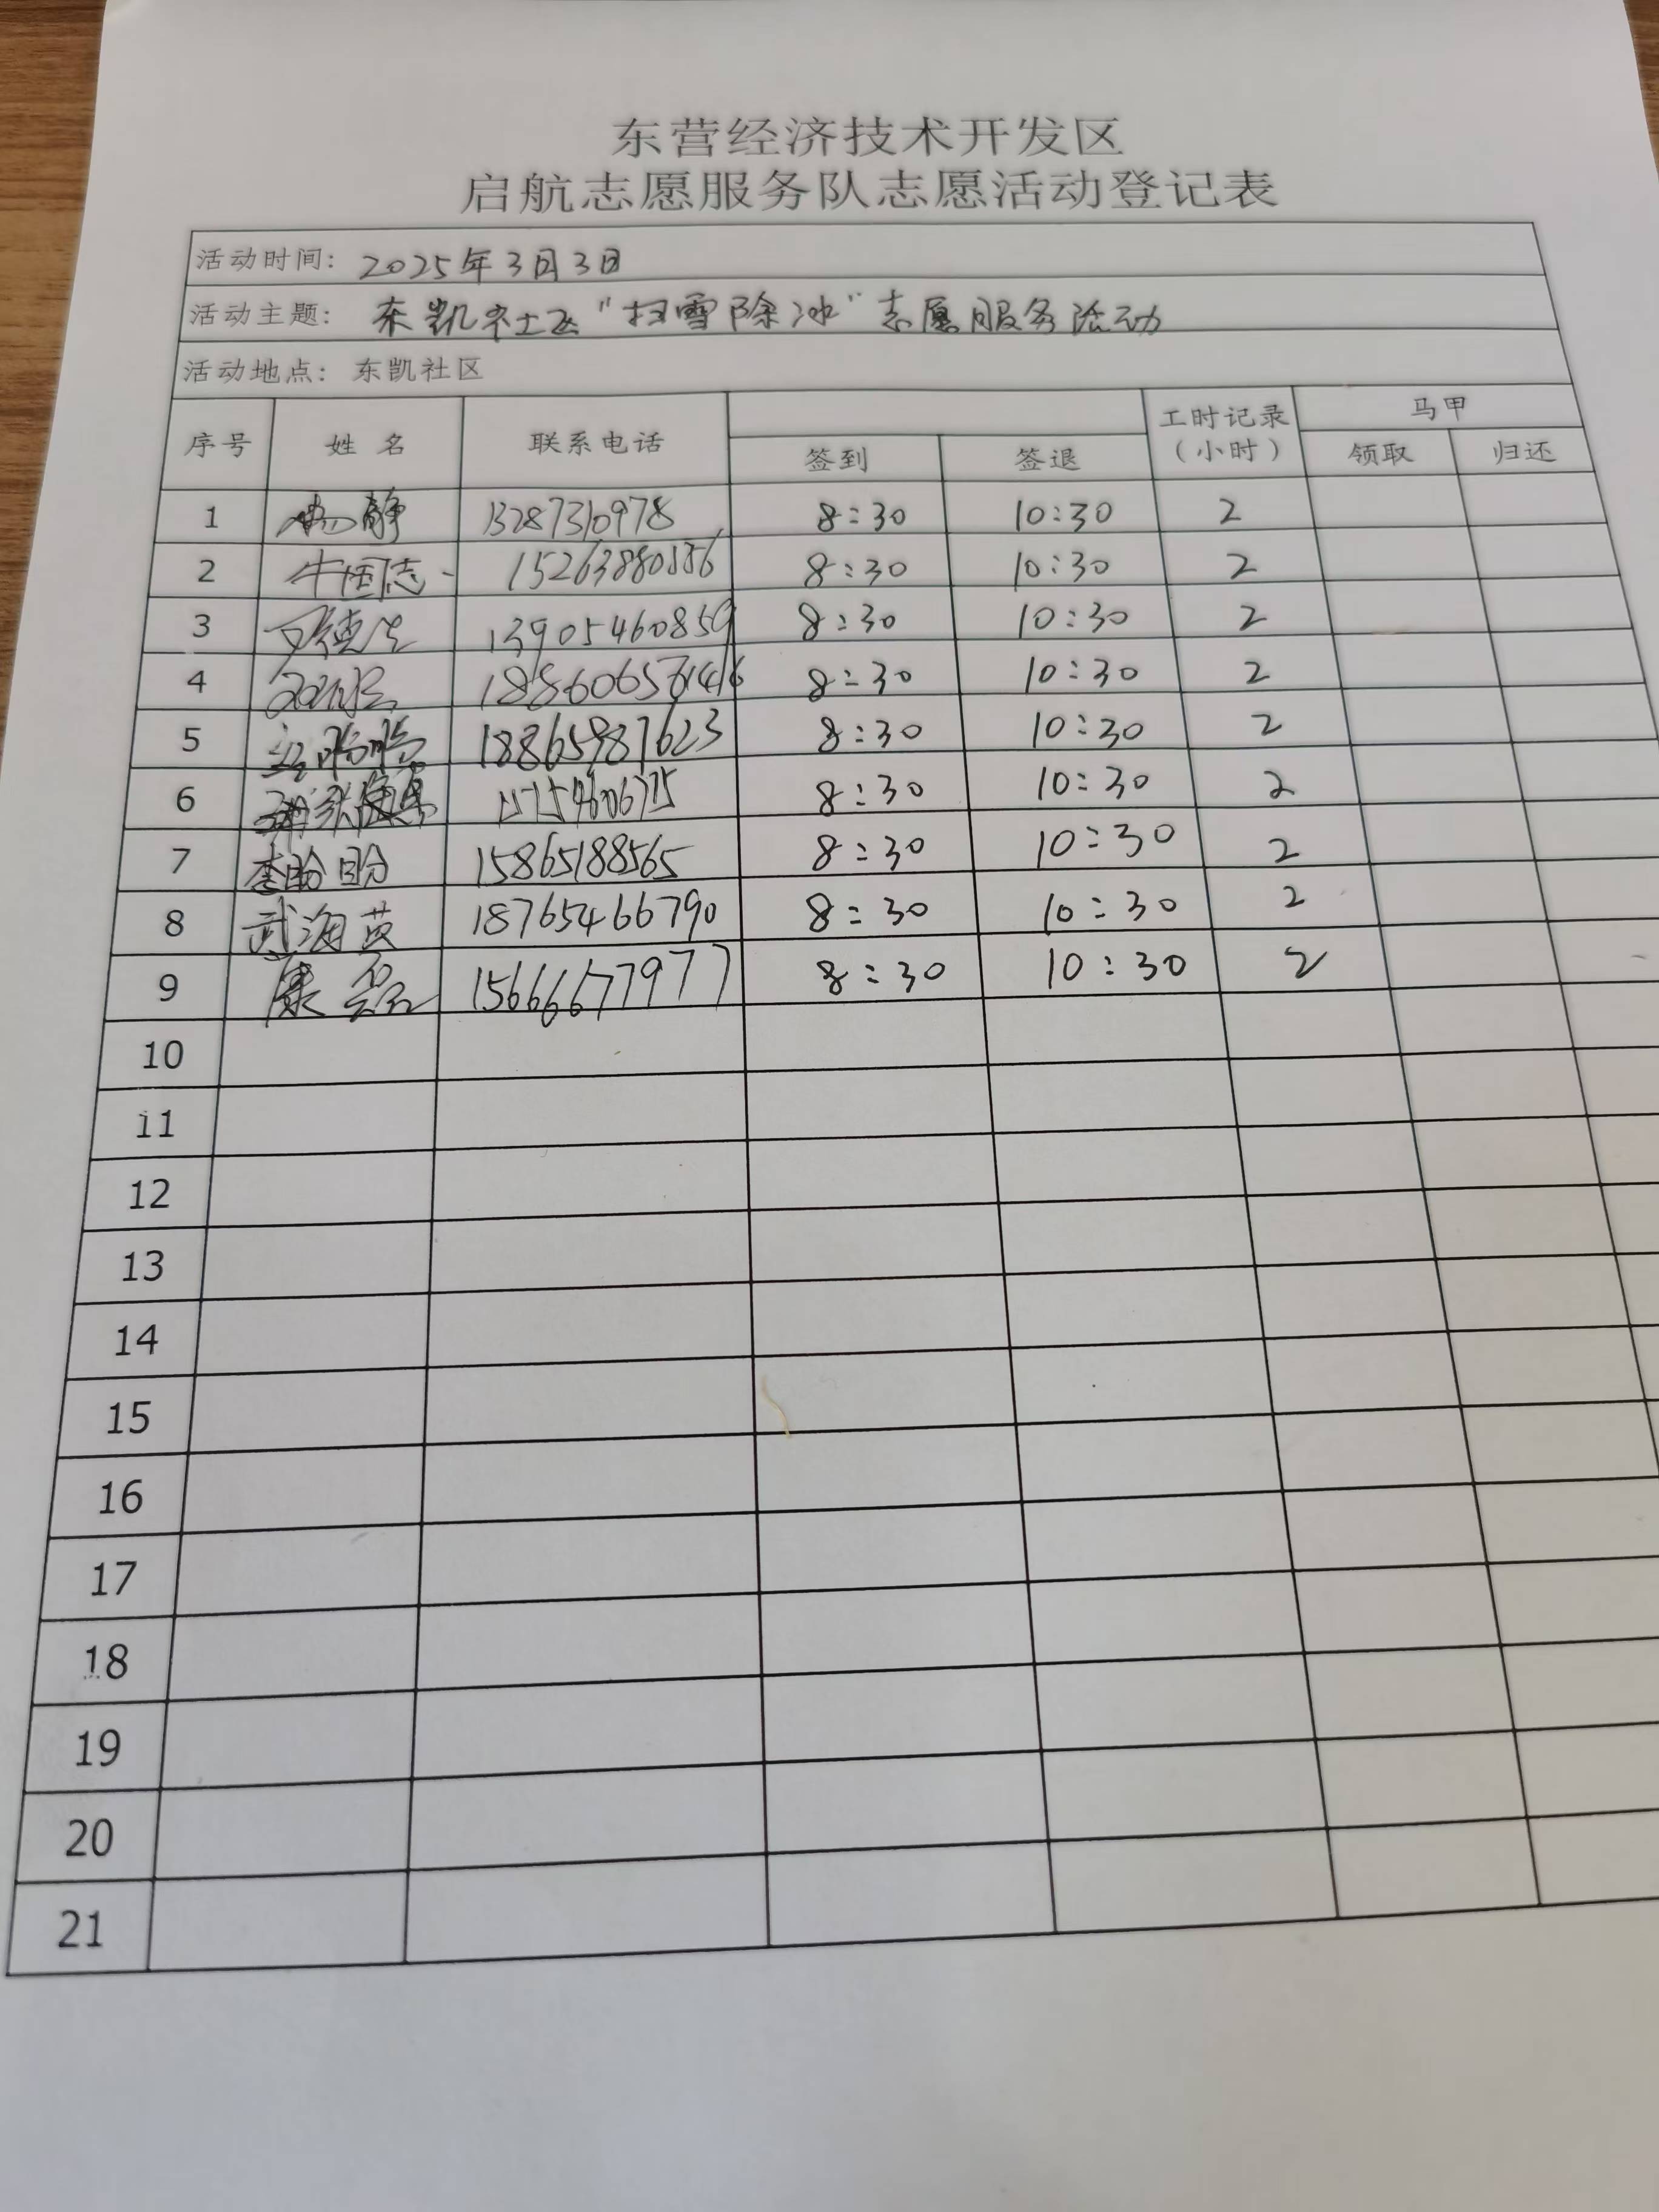 东营经济技术开发区
启航志愿服务队志愿活动登记表
活动时间: 2025年3月3日
活动主题: 东凯社区"扫雪除冰"志愿服务活动
活动地点: 东凯社区
序号 姓名 联系电话 签到 签退 工时记录(小时) 马甲 领取 归还
1 杨静 13287310978 8:30 10:30 2
2 牛国志 8:30 10:30 2
3 13905460859 8:30 10:30 2
4 8:30 10:30 2
5 18865987623 8:30 10:30 2
6 8:30 10:30 2
7 李盼盼 15865188565 8:30 10:30 2
8 武海英 18765466790 8:30 10:30 2
9 康磊 15666677977 8:30 10:30 2
10
11
12
13
14
15
16
17
18
19
20
21